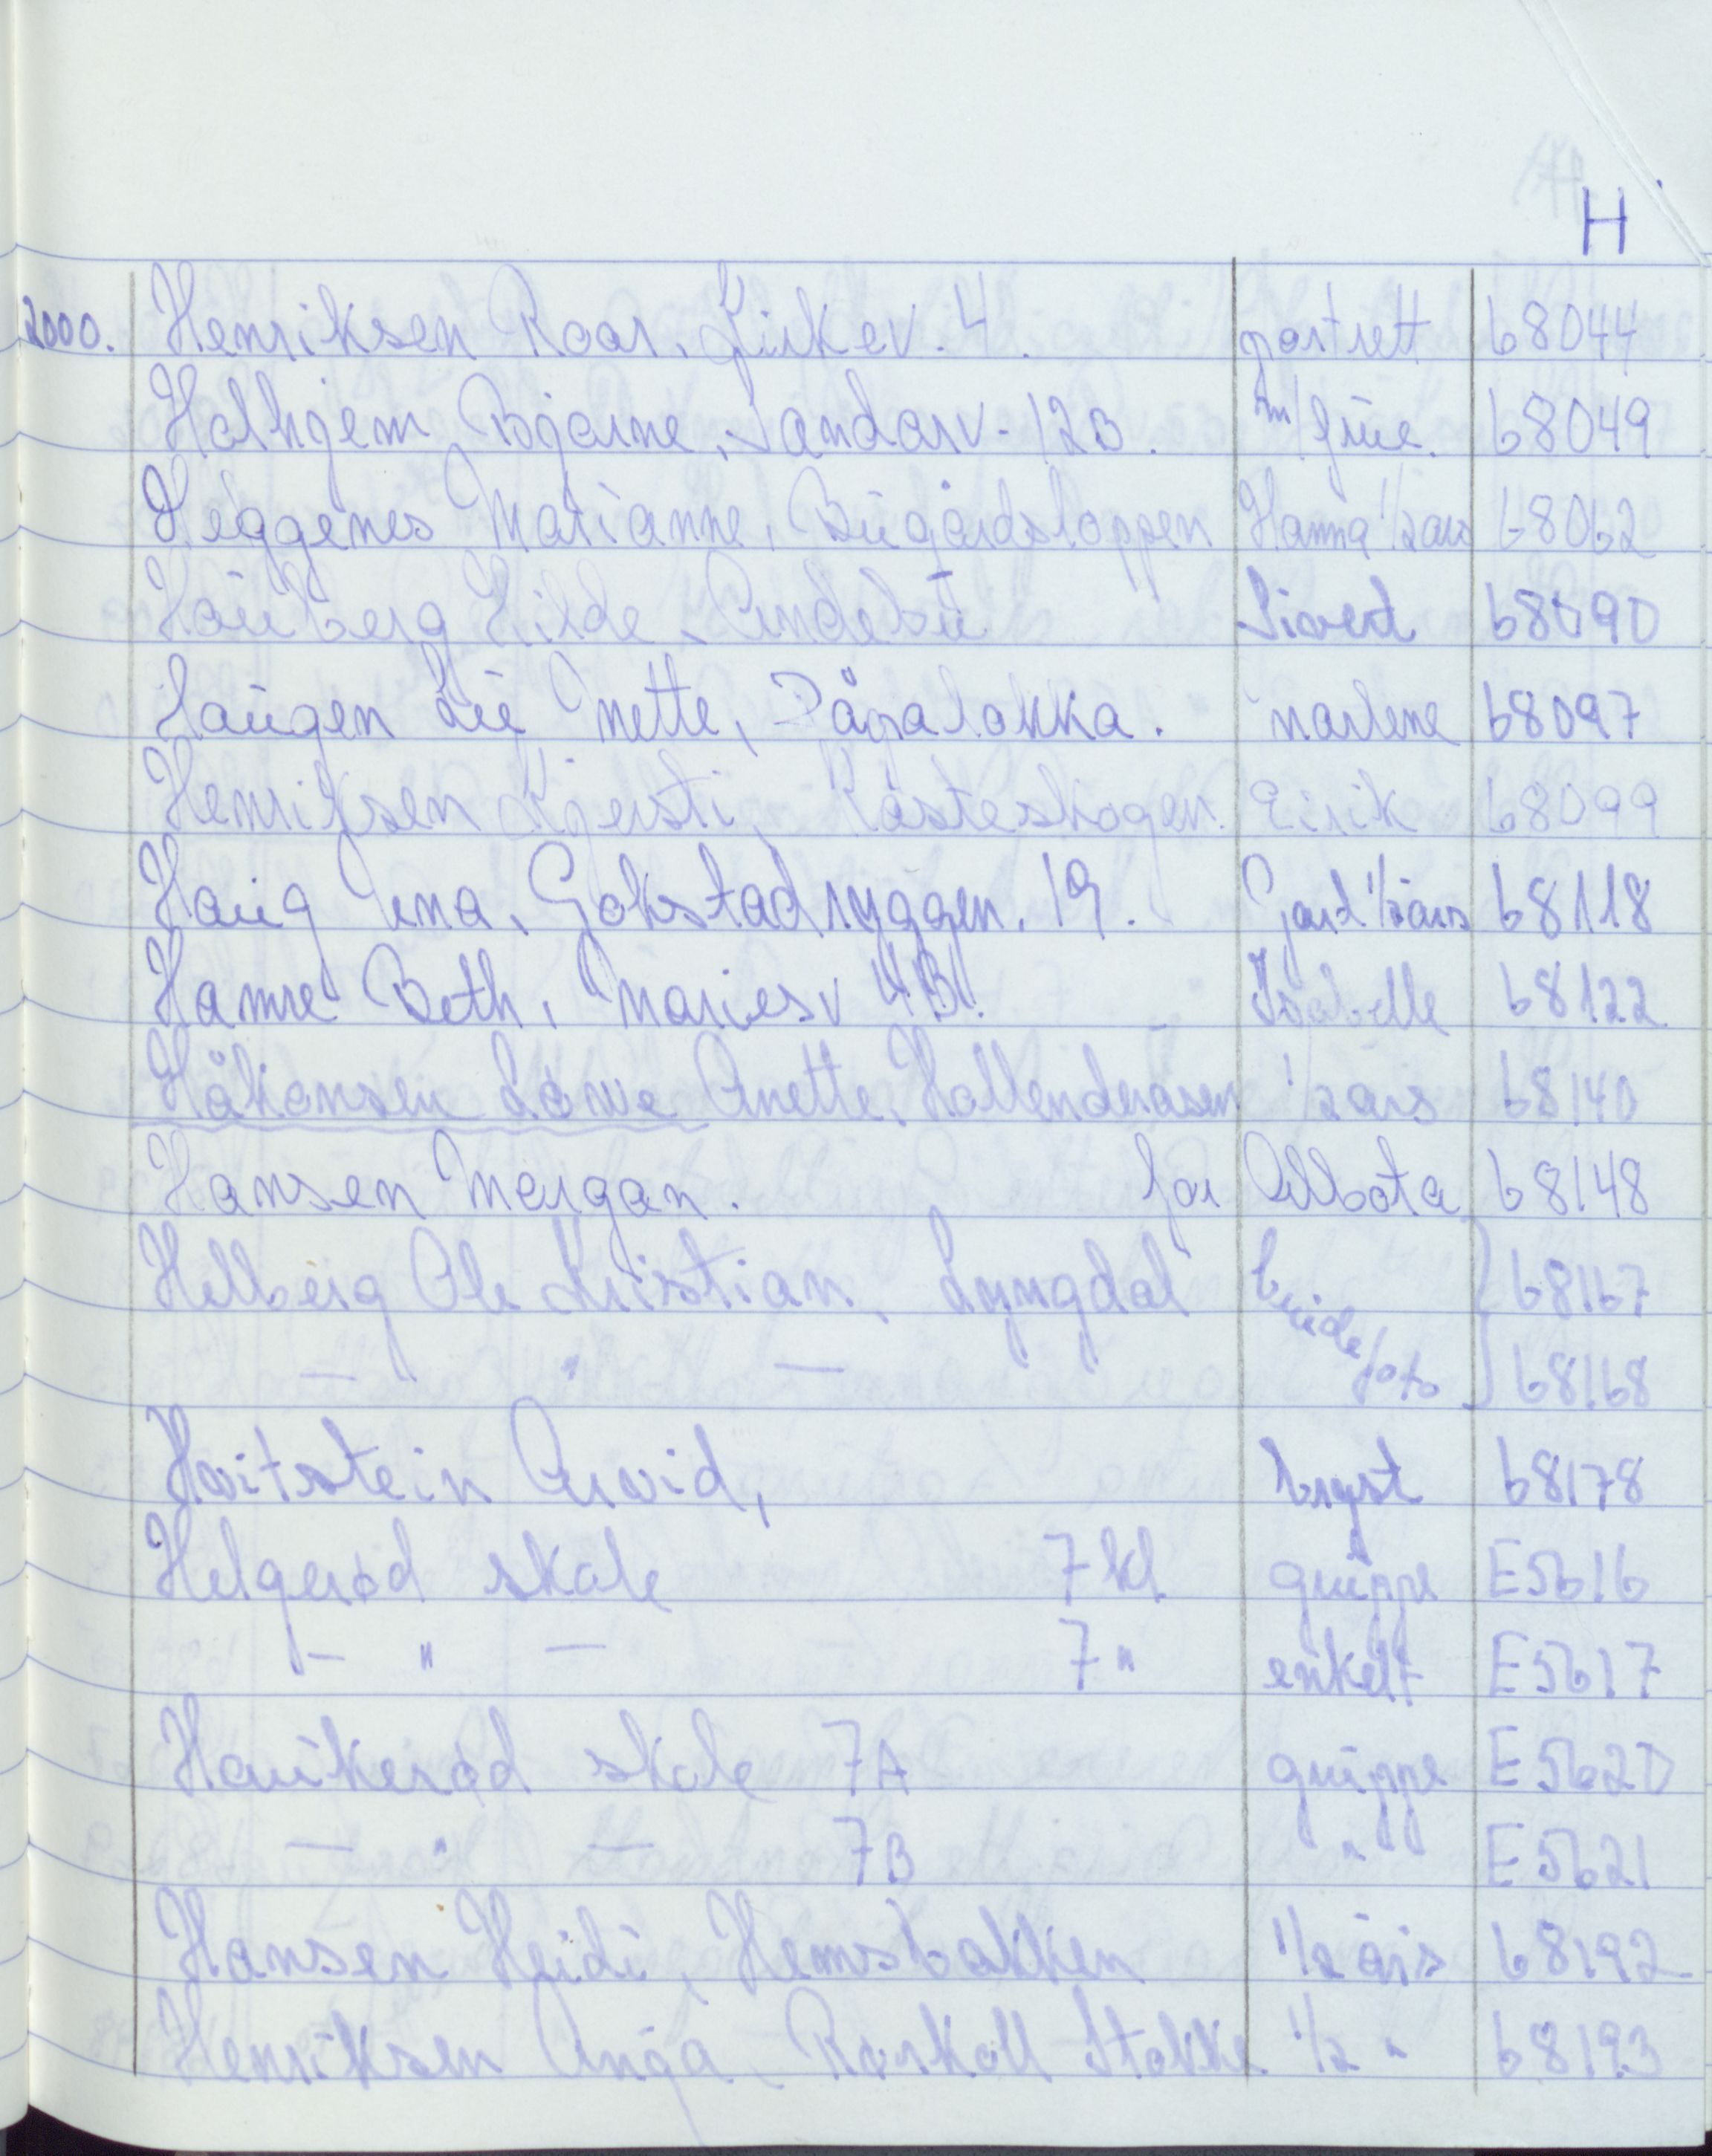 H
2000. Henriksen Roar, Kirkev. 4. portrett 68044
Holhjem Bjarne, Sandarv. 12B. m/frue. 68049
Heggenes Marianne, Bugårdstoppen Hanna 1/2 års 68062
Hauberg Hilde, Andebu 68090
Haugen Lie Mette, Råsaløkka. Marlene 68097
Henriksen Kjersti, Råsteskogen. Eirik 68099
Haug Una, Gokstadryggen. 19. 1/2 års 68118
Hamre Beth, Mariesv 4B. Isabelle 68122
Håkonsen Løwe Anette, Hollenderåsen 1/2 års 68140
Hansen Morgan. for Abbota 68148
Helberg Ole Kristian, Lyngdal brude 68167
— " — foto 68168
Hvitstein Arvid, bryst 68178
Helgerød skole 7 kl gruppe E5616
— " — 7 " enkelt E5617
Haukerød skole 7A gruppe E5620
— " — 7B " E5621
Hansen Heidi, Hemsbakken 1/2 års 68192
Henriksen Anja, Rørkoll Stokke 1/2 " 68193